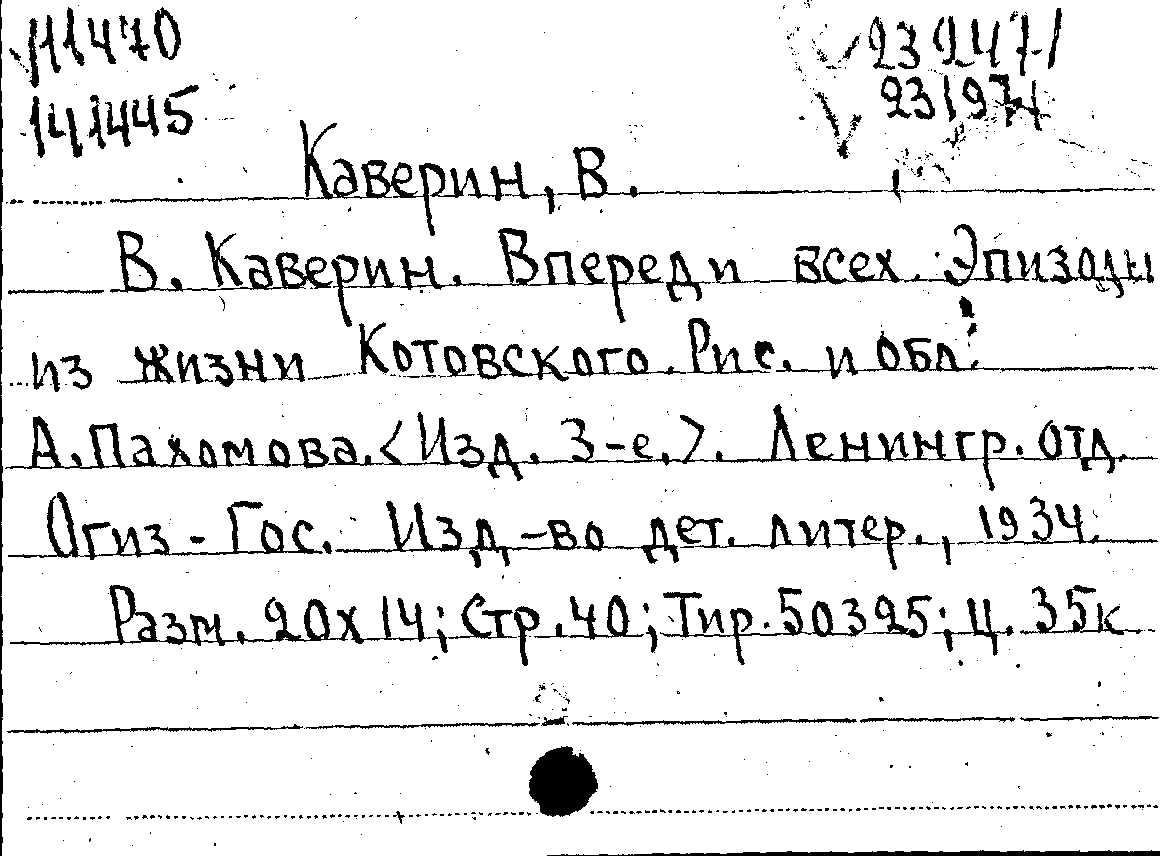 111470
141445
23247/
23197/
Каверин, В.
В. Каверин. Впереди всех. Эпизоды
из жизни Котовского. Рис. и обл.
А. Пахомова. <Изд. 3-е.>. Ленингр. отд.
Огиз - Гос. Изд-во дет. литер., 1934.
Разм. 20х14; Стр. 40; Тир. 50325; Ц. 35к